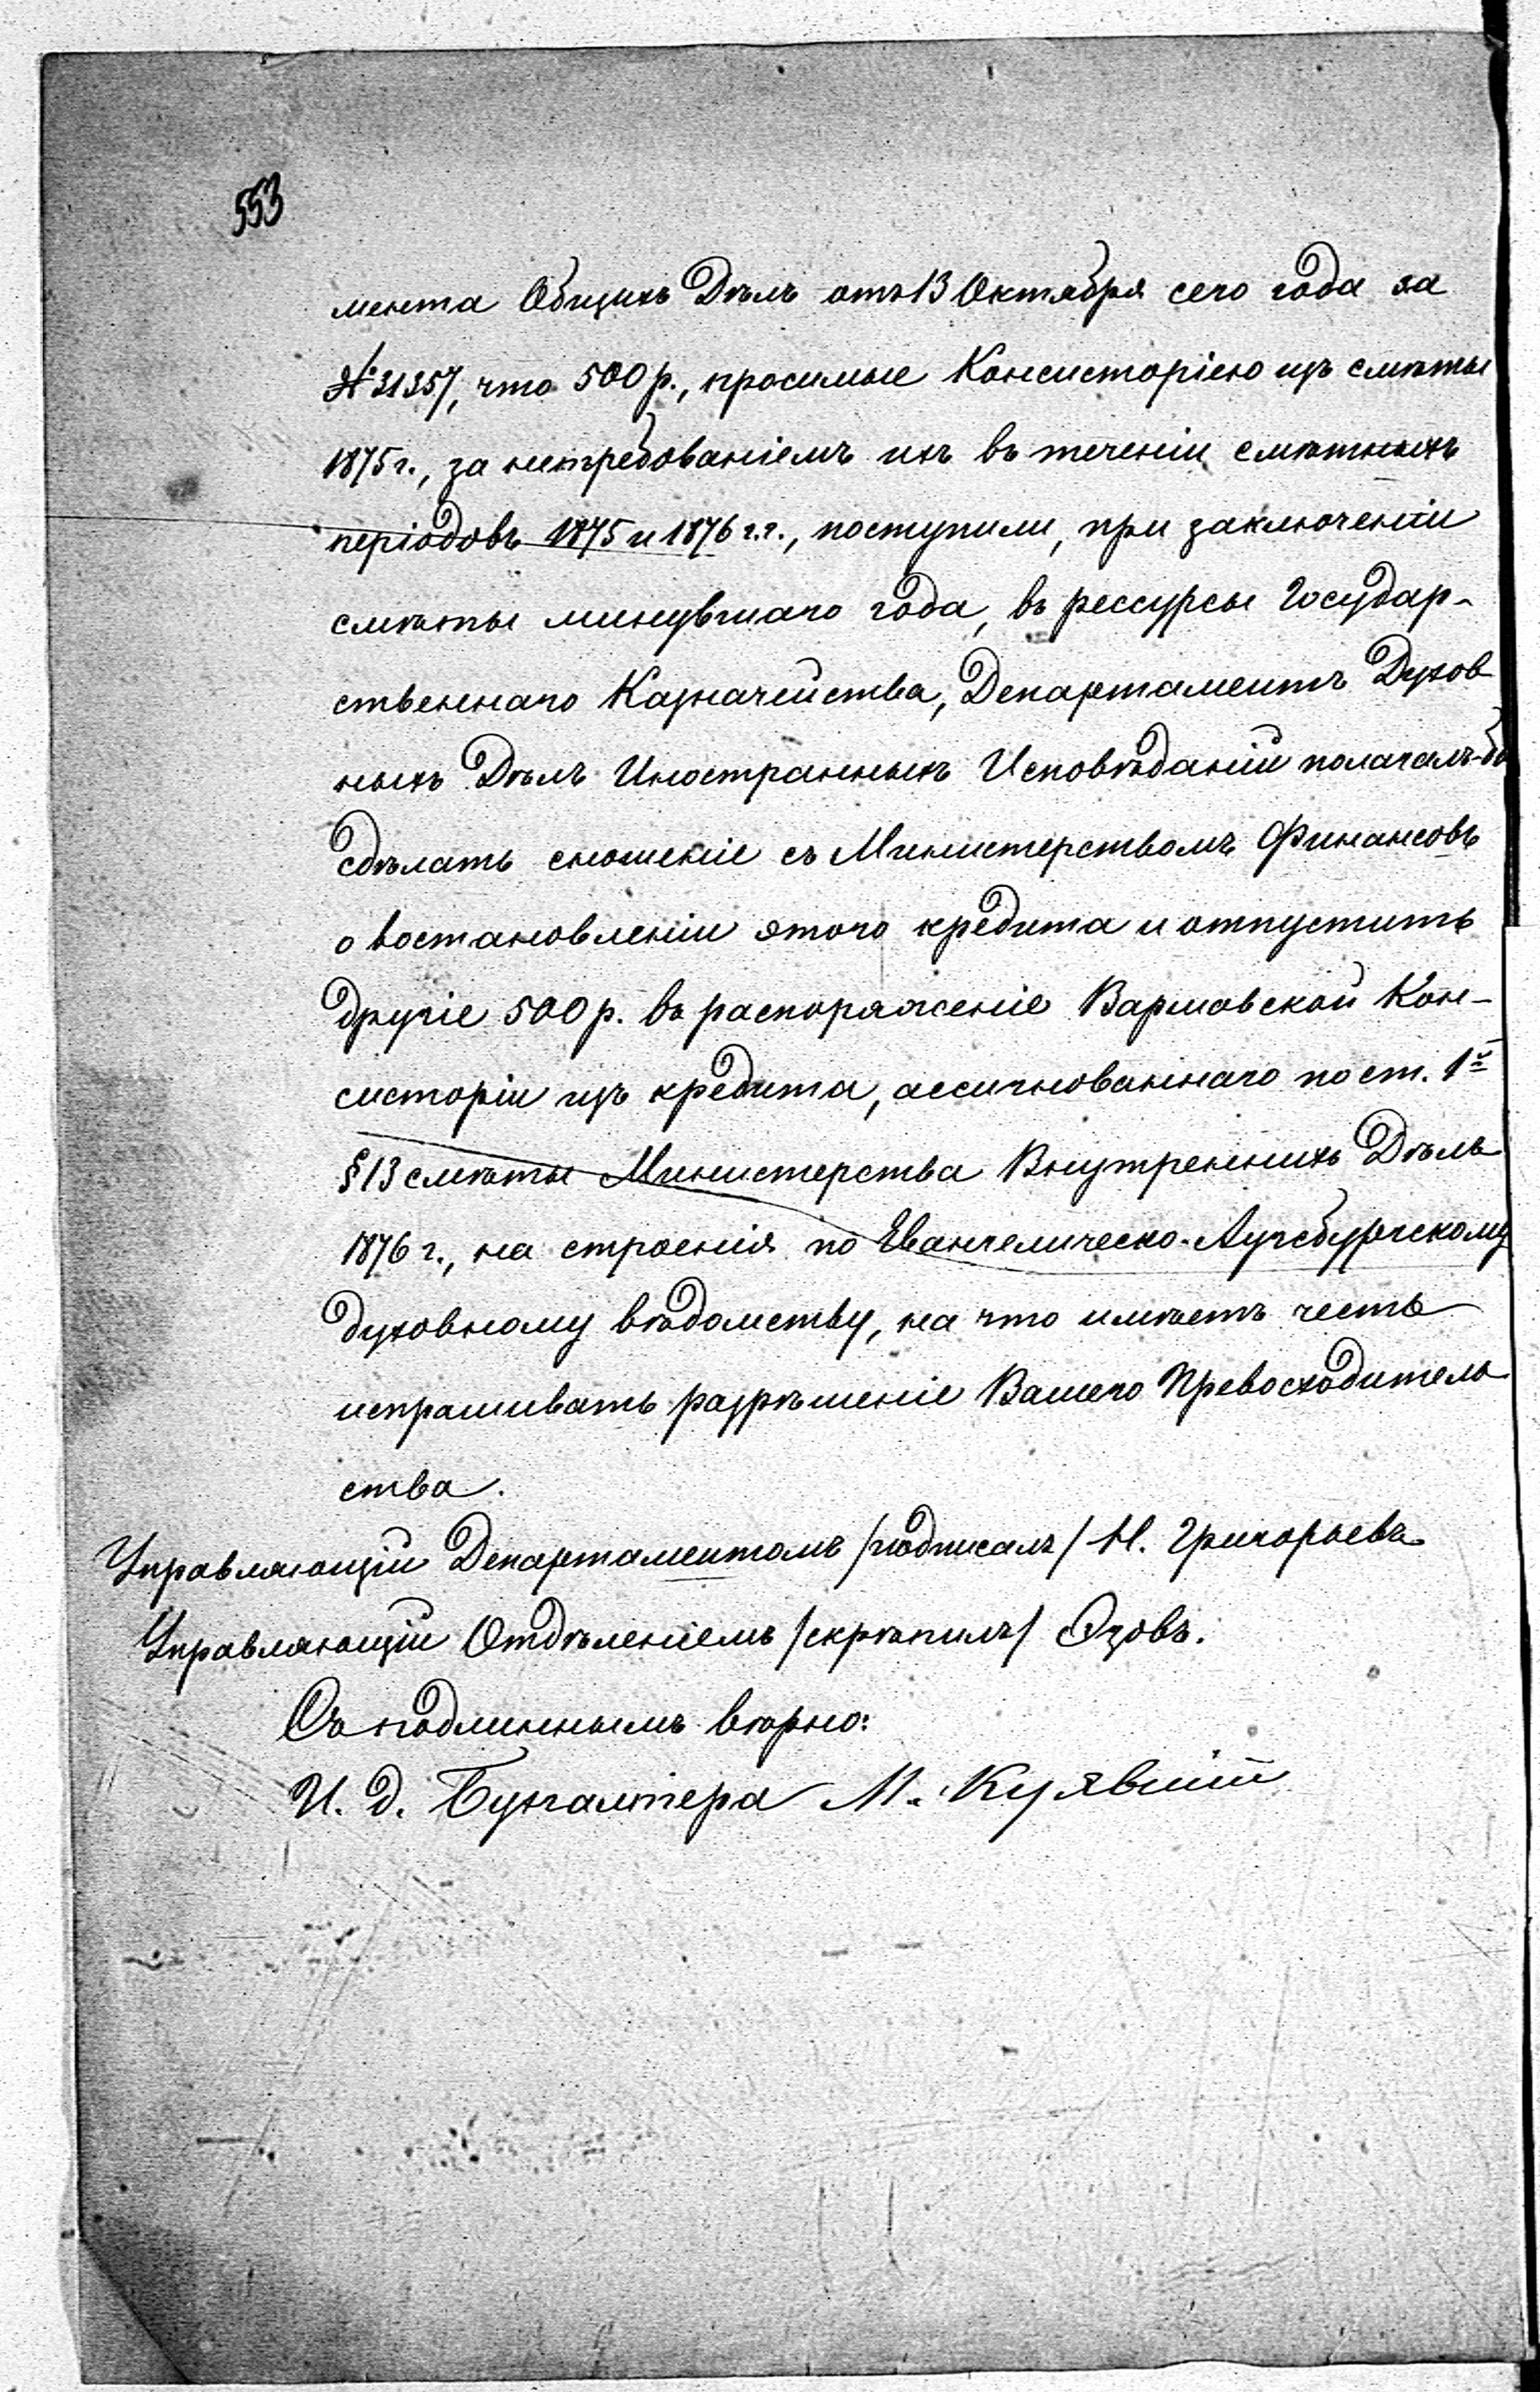 553
мента Общихъ Дѣлъ отъ 13 Октября сего года за
№ 21357, что 500 р., просимые Консисторіею изъ смѣты
1875 г., за нетребованіемъ ихъ въ теченіи смѣтныхъ
періодовъ 1875 и 1876 г.г., поступили, при заключеніи
смѣты минувшаго года, въ рессурсы Государ-
ственнаго Казначейства, Департаментъ Духов
ныхъ Дѣлъ Иностранныхъ Исповѣданій полагалъ-бы
сдѣлать сношеніе съ Министерствомъ Финансовъ
о востановленіи этого кредита и отпустить
другіе 500 р. въ распоряженіе Варшавской Кон-
систоріи изъ кредита, ассигнованнаго по ст. 1й
§ 13 смѣты Министерства Внутреннихъ Дѣлъ
1876 г., на строенія по Евангелическо-Аугсбургскому
духовному вѣдомству, на что имѣетъ честь
испрашивать разрѣшеніе Вашего Превосходитель
ства.
Управляющій Департаментомъ /подписалъ/ Н. Григорьевъ
Управляющій Отдѣленіемъ /скрѣпилъ/ Озовъ.
Съ подлиннымъ вѣрно:
И. д. Бухгалтера М.